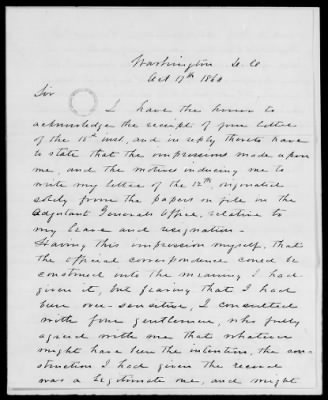 Washington D. C.
Oct 17th 1860
Sir
I have the honor to
acknowledge the receipt of your letter
of the 15th inst, and in reply thereto have
to state that the impressions made upon
me, and the motives inducing me to
write my letter of the 12th, originated
solely from the papers on file in the
Adjutant Generals Office, relative to
my leave and resignation -
Having this impression myself, that
the official correspondence could be
construed into the meaning I had
given it, but fearing that I had
been over-sensitive, I consulted
with four gentlemen, who fully
agreed with me that whatever
might have been the intention, the con-
struction I had given the record
was a legitimate one, and might